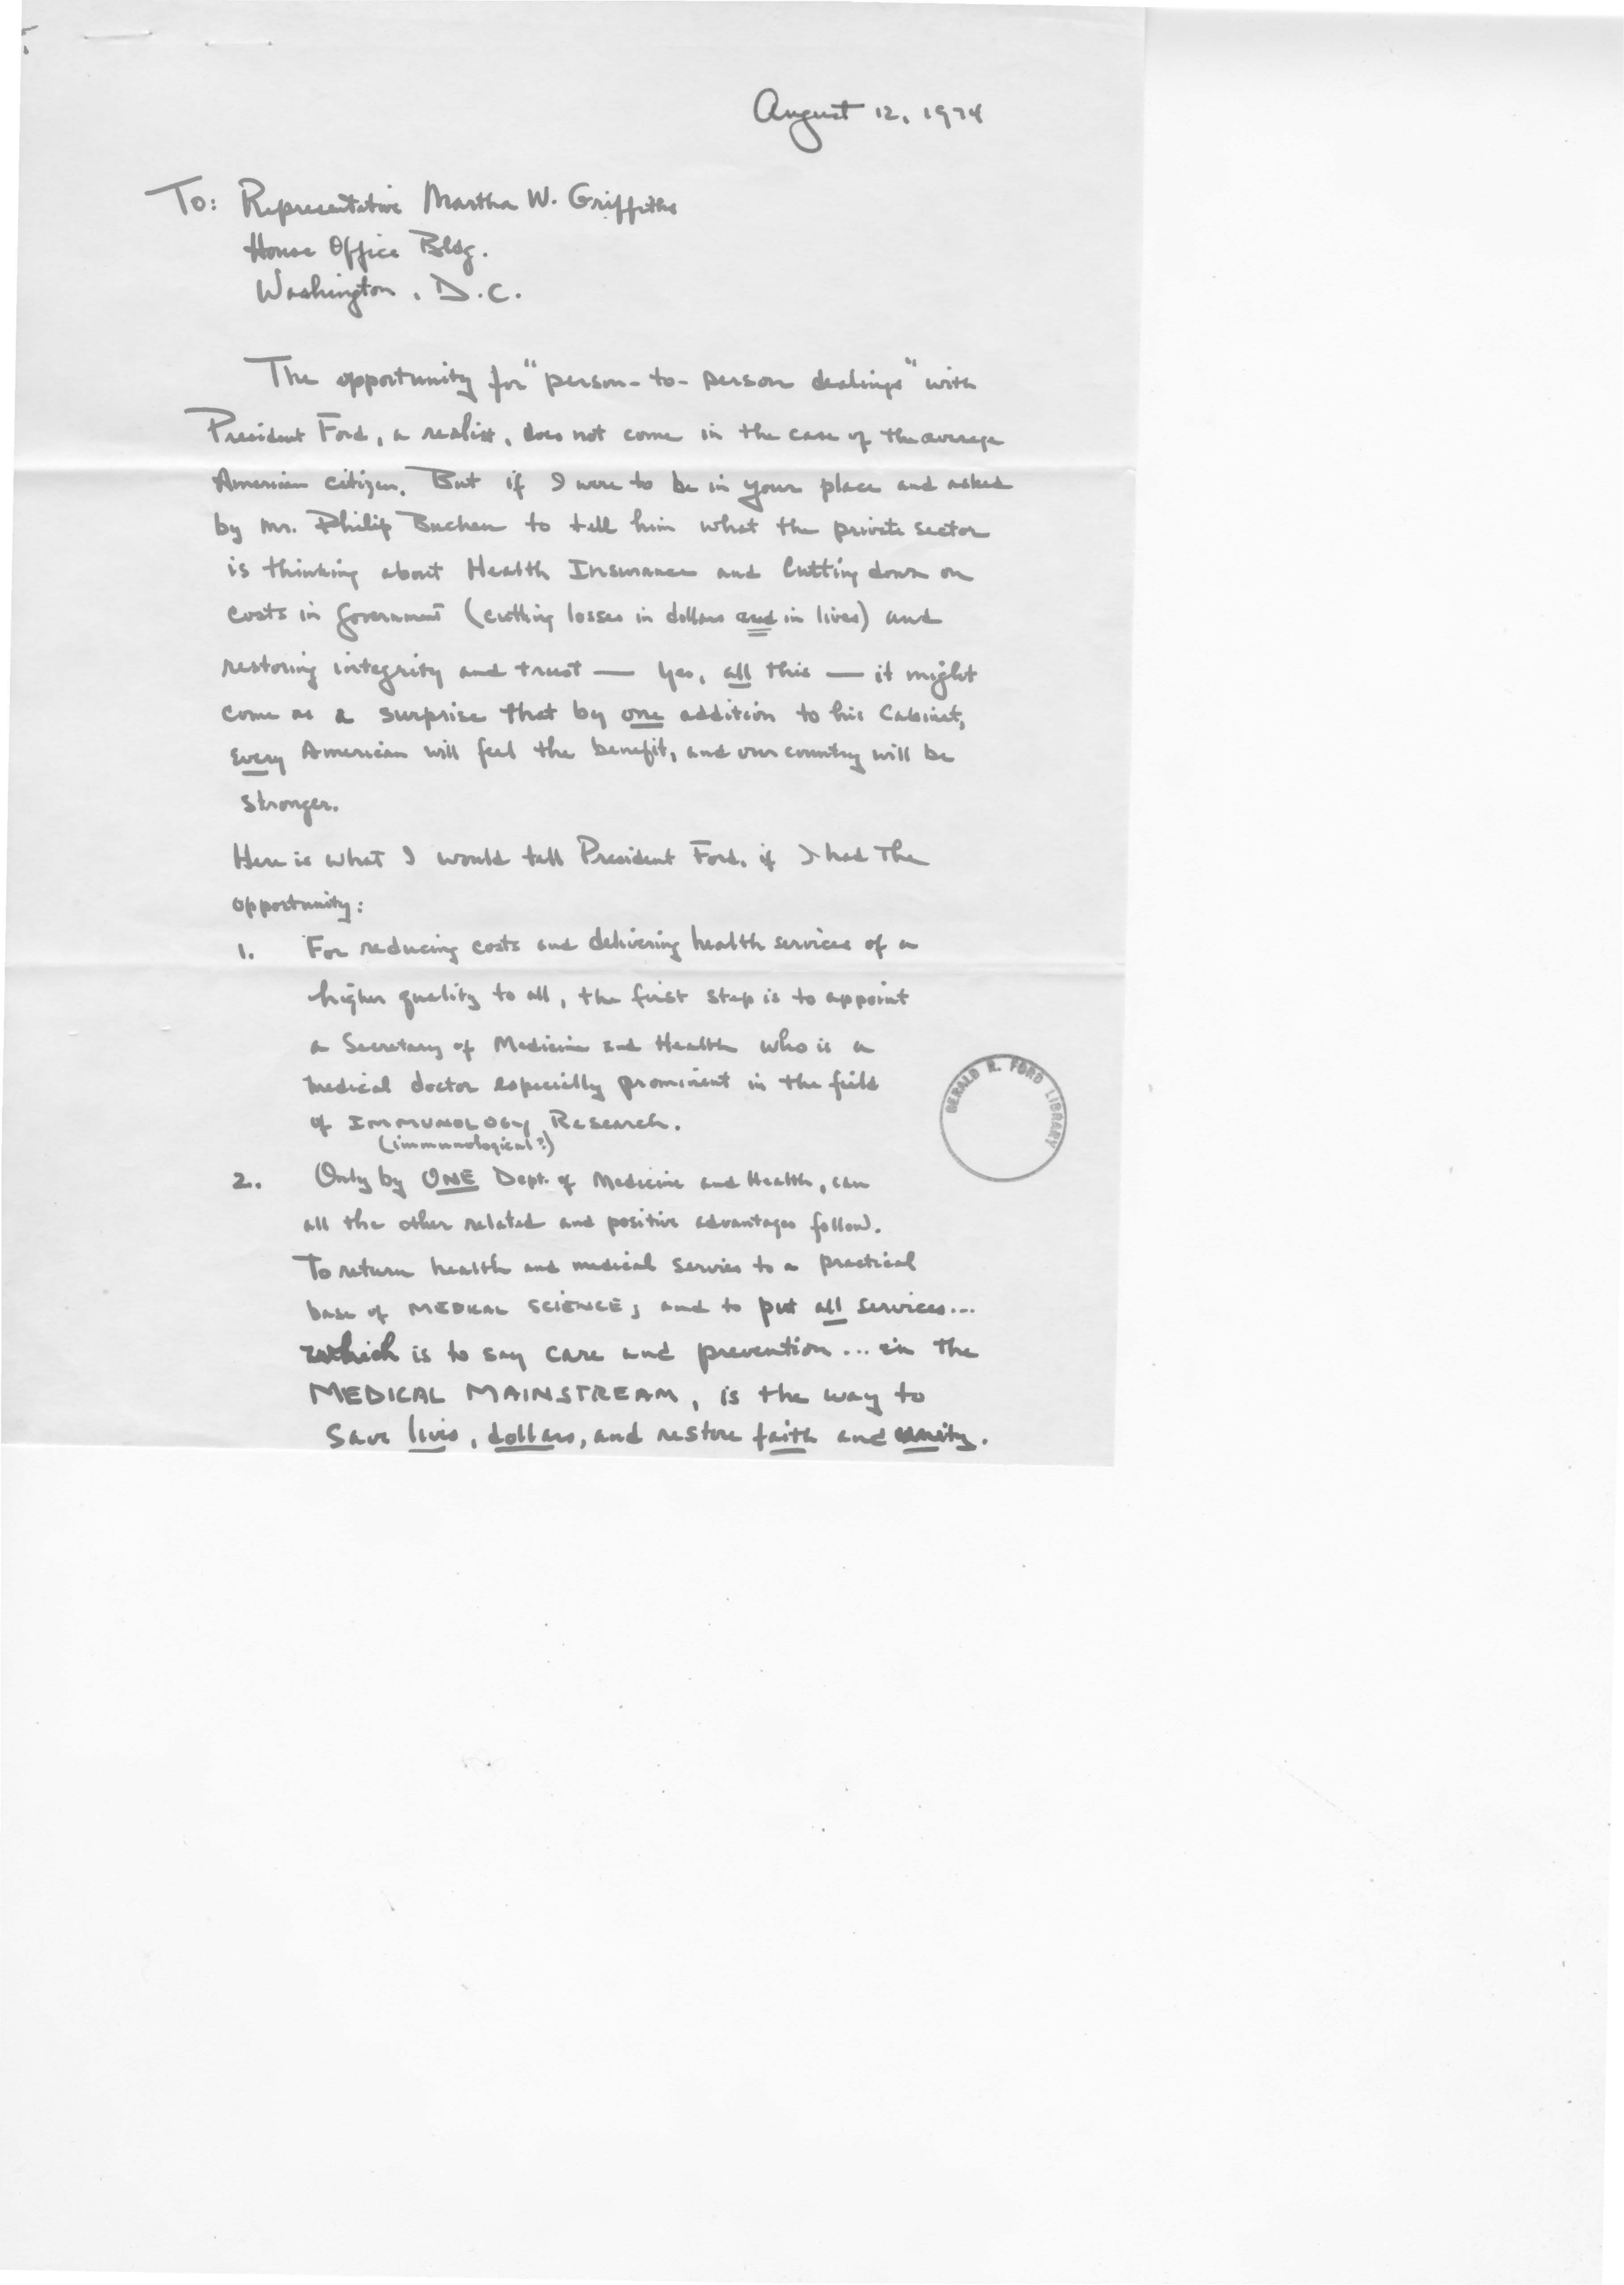 August 12, 1974
To: Representative Martha W. Griffiths
House Office Bldg.
Washington, D.C.
The opportunity for "person-to-person dealings" with
President Ford, a realist, does not come in the case of the average
American citizen. But if I were to be in your place and asked
by Mr. Philip Buchen to tell him what the private sector
is thinking about Health Insurance and Cutting down on
costs in Government (cutting losses in dollars and in lives) and
restoring integrity and trust — Yes, all this — it might
come as a surprise that by one addition to his Cabinet,
every American will feel the benefit, and our country will be
stronger.
Here is what I would tell President Ford, if I had the
opportunity:
1. For reducing costs and delivering health services of a
higher quality to all, the first step is to appoint
a Secretary of Medicine and Health who is a
medical doctor especially prominent in the field
of IMMUNOLOGY Research.
(immunological?)
2. Only by ONE Dept. of Medicine and Health, can
all the other related and positive advantages follow.
To return health and medical services to a practical
base of MEDICAL SCIENCE; and to put all services...
which is to say care and prevention... in the
MEDICAL MAINSTREAM, is the way to
save lives, dollars, and restore faith and unity.
GERALD R. FORD LIBRARY